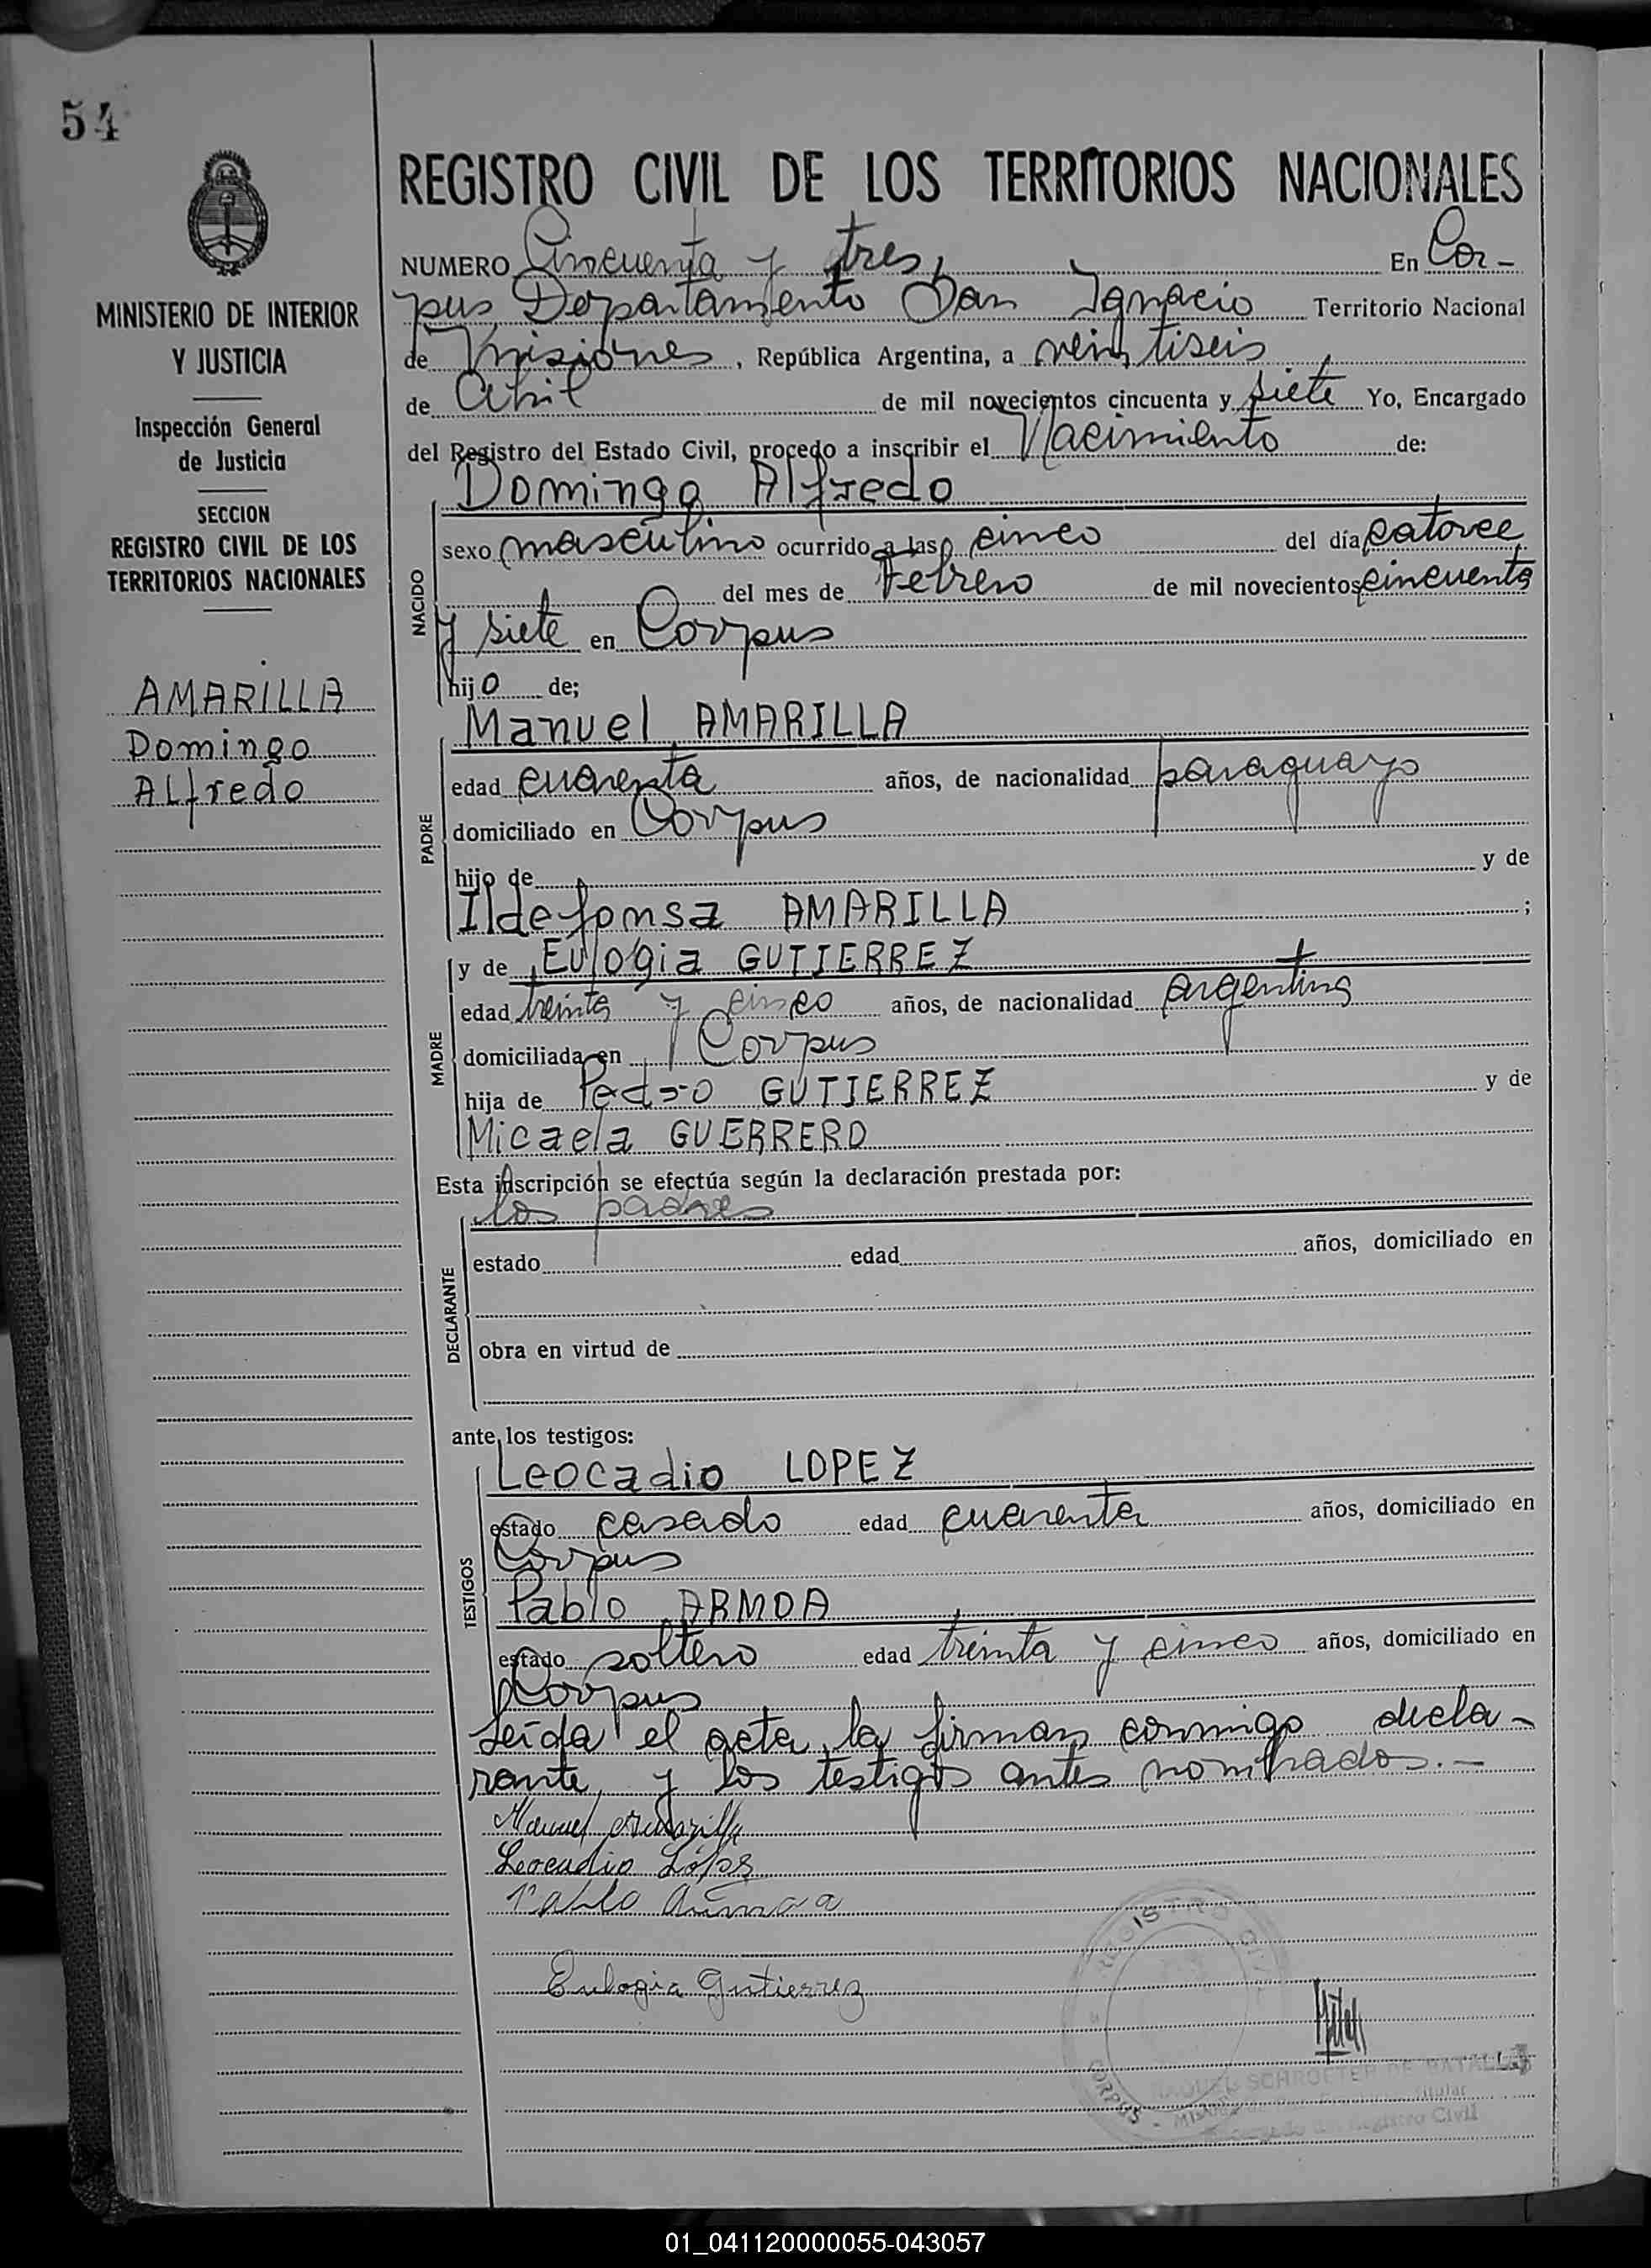 54
REGISTRO CIVIL DE LOS TERRITORIOS NACIONALES
MINISTERIO DE INTERIOR
Y JUSTICIA
Inspección General
de Justicia
SECCION
REGISTRO CIVIL DE LOS
TERRITORIOS NACIONALES
AMARILLA
Domingo
ALfredo
NUMERO Cincuenta y tres, En Cor-
pus Departamento San Ignacio Territorio Nacional
de Misiones, República Argentina, a veintiseis
de Abril de mil novecientos cincuenta y siete Yo, Encargado
del Registro del Estado Civil, procedo a inscribir el Nacimiento de:
NACIDO
Domingo Alfredo
sexo masculino ocurrido a las cinco del día catorce
del mes de Febrero de mil novecientos cincuenta
y siete en Corpus
hijo de;
PADRE
Manuel AMARILLA
edad cuarenta años, de nacionalidad paraguayo
domiciliado en Corpus
hijo de y de
Ildefonsa AMARILLA ;
MADRE
y de Eulogia GUTIERREZ
edad treinta y cinco años, de nacionalidad argentina
domiciliada en Corpus
hija de Pedro GUTIERREZ y de
Micaela GUERRERO
Esta inscripción se efectúa según la declaración prestada por:
DECLARANTE
los padres
estado edad años, domiciliado en
obra en virtud de
ante los testigos:
TESTIGOS
Leocadio LOPEZ
estado casado edad cuarenta años, domiciliado en
Corpus
Pablo ARMOA
estado soltero edad treinta y cinco años, domiciliado en
Corpus
Leída el acta, la firman conmigo decla-
rante, y los testigos antes nombrados.-
Manuel Amarilla
Leocadio López
Pablo Armoa
Eulogia Gutierrez
REGISTRO CIVIL
CORPUS - MISIONES
RAQUEL SCHROETER DE BATALLA
Titular
Encargado del Registro Civil
01_041120000055-043057